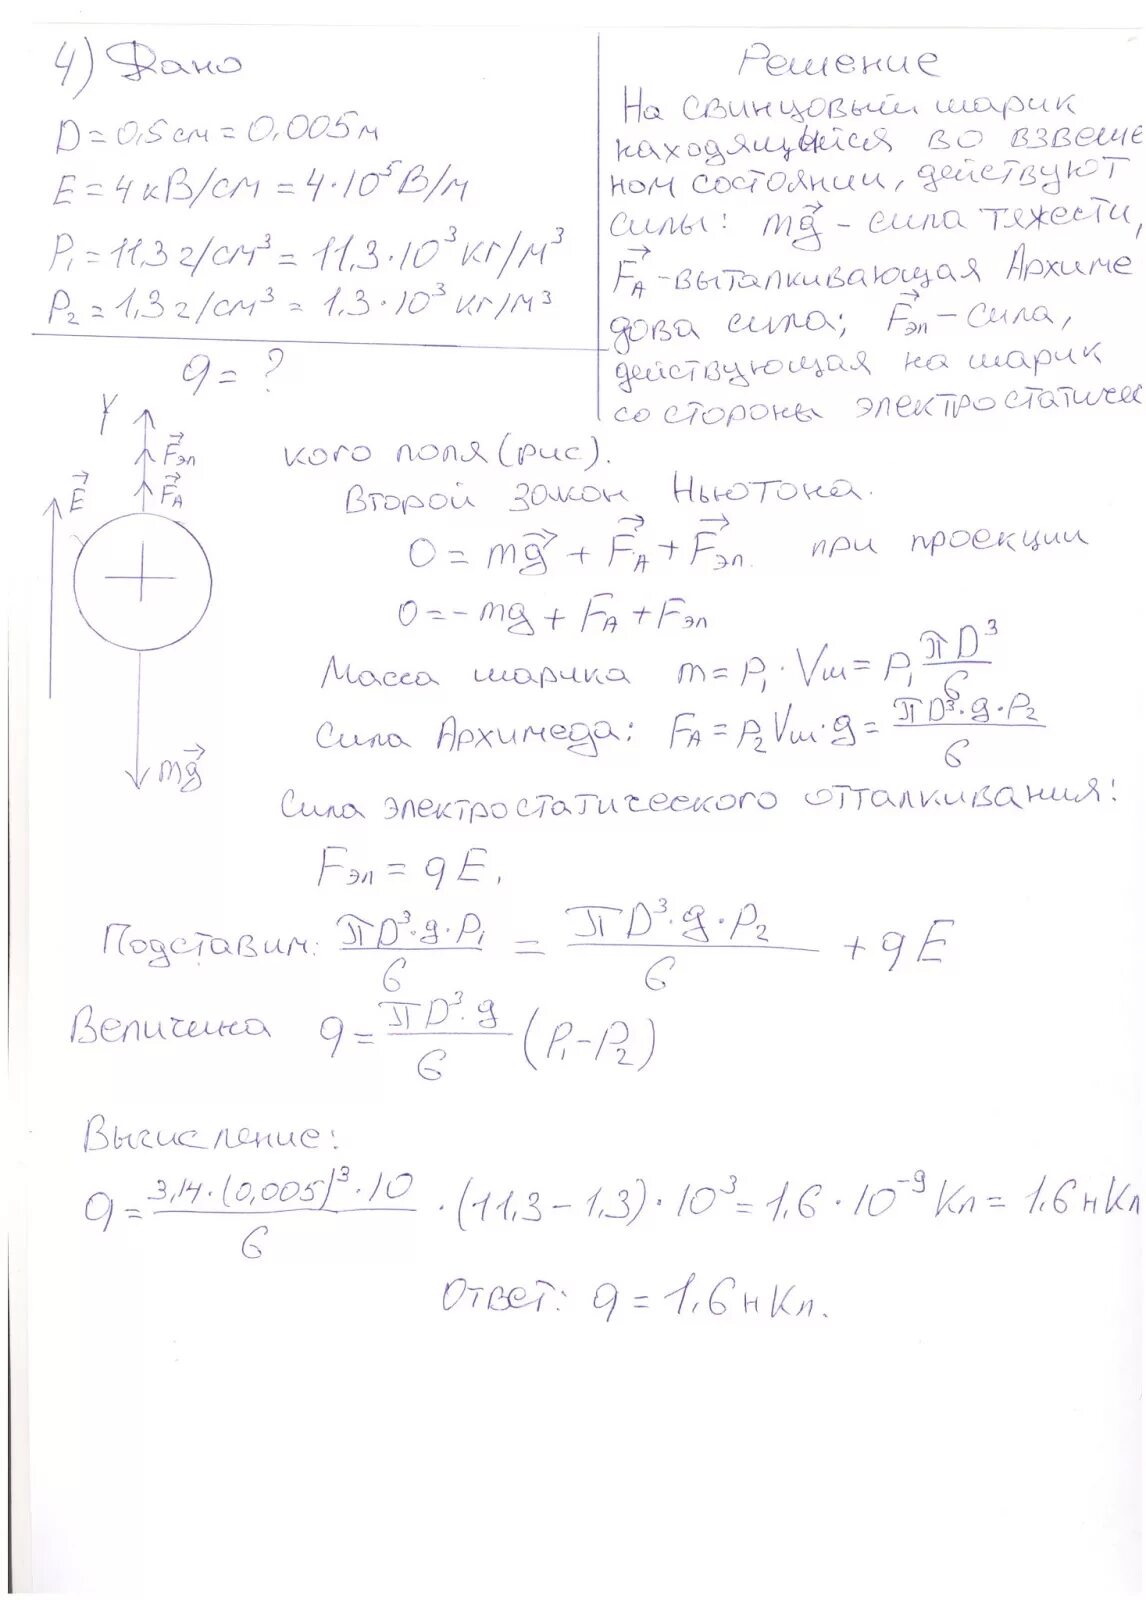 4) Дано
D = 0,5 см = 0,005 м
E = 4 кВ/см = 4·10⁵ В/м
ρ₁ = 11,3 г/см³ = 11,3·10³ кг/м³
ρ₂ = 1,3 г/см³ = 1,3·10³ кг/м³
q = ?
Решение
На свинцовый шарик
находящийся во взвеше
ном состоянии, действуют
силы: mg⃗ - сила тяжести,
F⃗A - выталкивающая Архиме
дова сила; F⃗эл - сила,
действующая на шарик
со стороны электростатичес
кого поля (рис).
Y
F⃗эл
F⃗A
E⃗
mg⃗
Второй закон Ньютона.
0 = mg⃗ + F⃗A + F⃗эл. при проекции
0 = - mg + FA + Fэл
Масса шарика m = ρ₁ · Vш = ρ₁ πD³/6
Сила Архимеда: FA = ρ₂ Vш · g = πD³·g·ρ₂/6
Сила электростатического отталкивания:
Fэл = qE.
Подставим: πD³·g·ρ₁/6 = πD³·g·ρ₂/6 + qE
Величина q = πD³·g/6 (ρ₁ - ρ₂)
Вычисление:
q = 3,14·(0,005)³·10/6 · (11,3 - 1,3)·10³ = 1,6·10⁻⁹ Кл = 1,6 нКл
Ответ: q = 1,6 нКл.